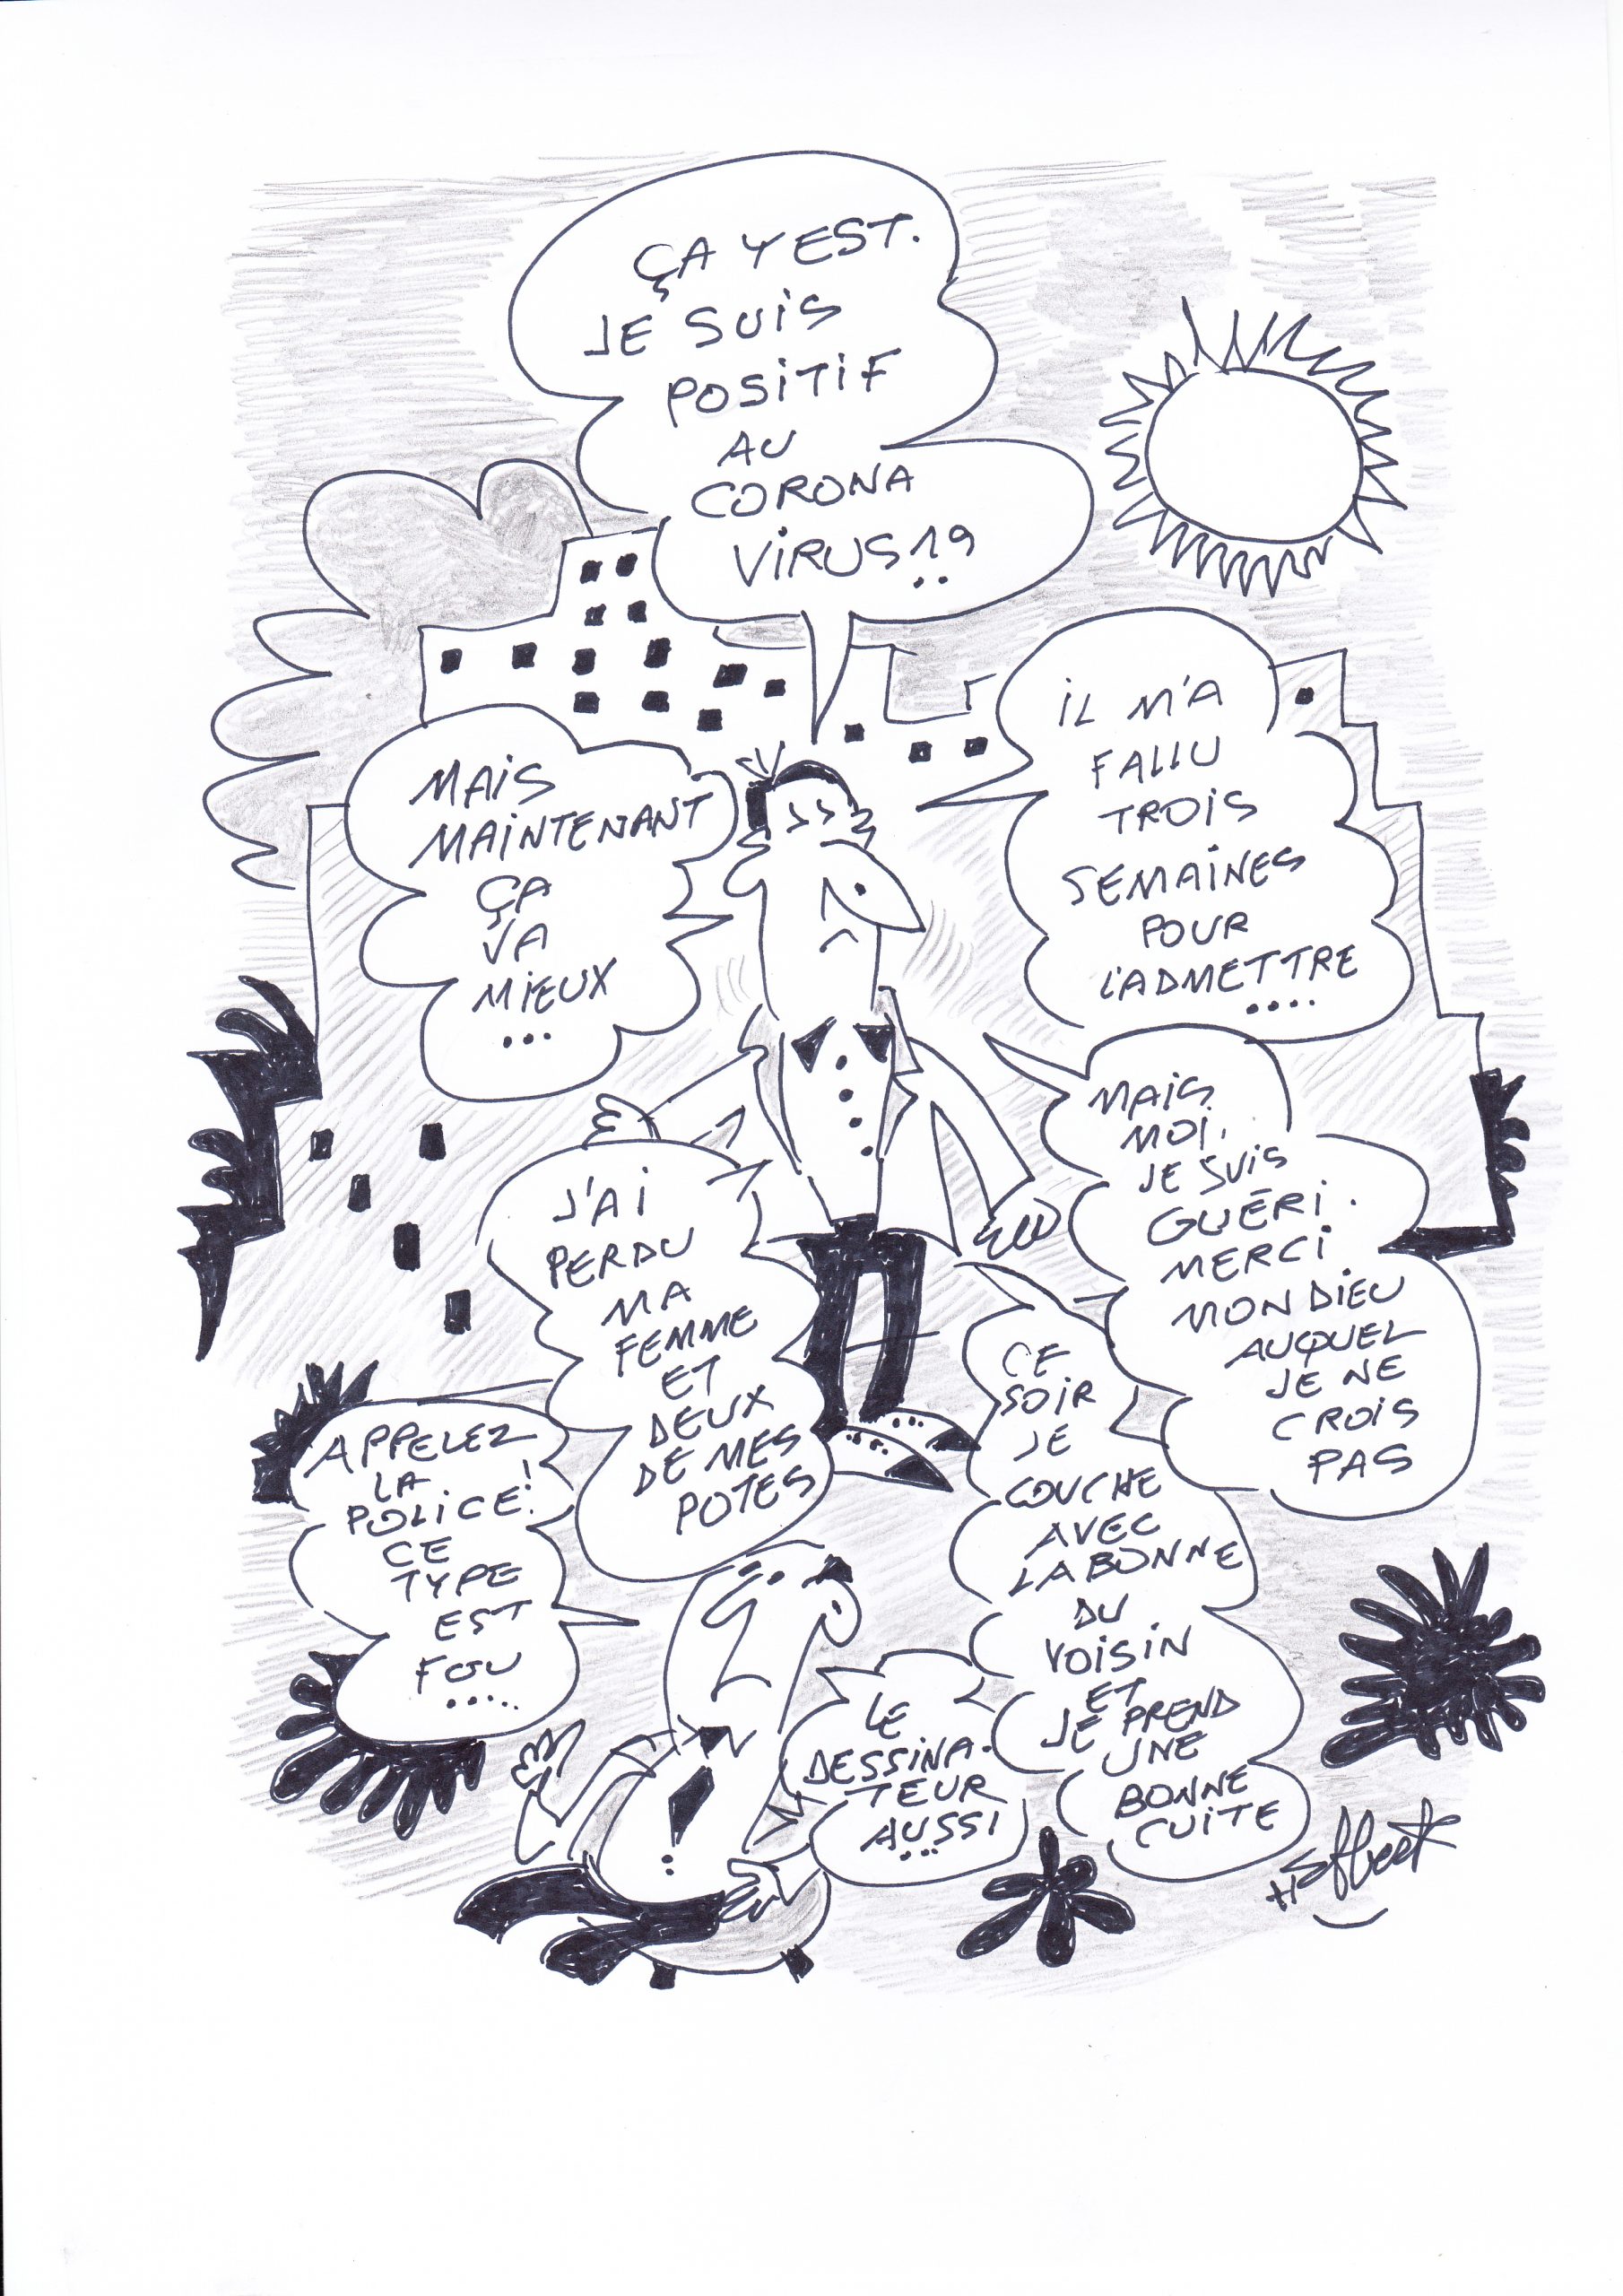 ÇA Y EST.
JE SUIS
POSITIF
AU
CORONA
VIRUS 19
..
IL M'A
FALLU
TROIS
SEMAINES
POUR
L'ADMETTRE
....
MAIS
MAINTENANT
ÇA
VA
MIEUX
...
J'AI
PERDU
MA
FEMME
ET
DEUX
DE MES
POTES
MAIS
MOI.
JE SUIS
GUÉRI.
MERCI
MON DIEU
AUQUEL
JE NE
CROIS
PAS
CE
SOIR
JE
COUCHE
AVEC
LA BONNE
DU
VOISIN
ET
JE PREND
UNE
BONNE
CUITE
APPELEZ
LA
POLICE!
CE
TYPE
EST
FOU
.....
LE
DESSINA-
TEUR
AUSSI
...